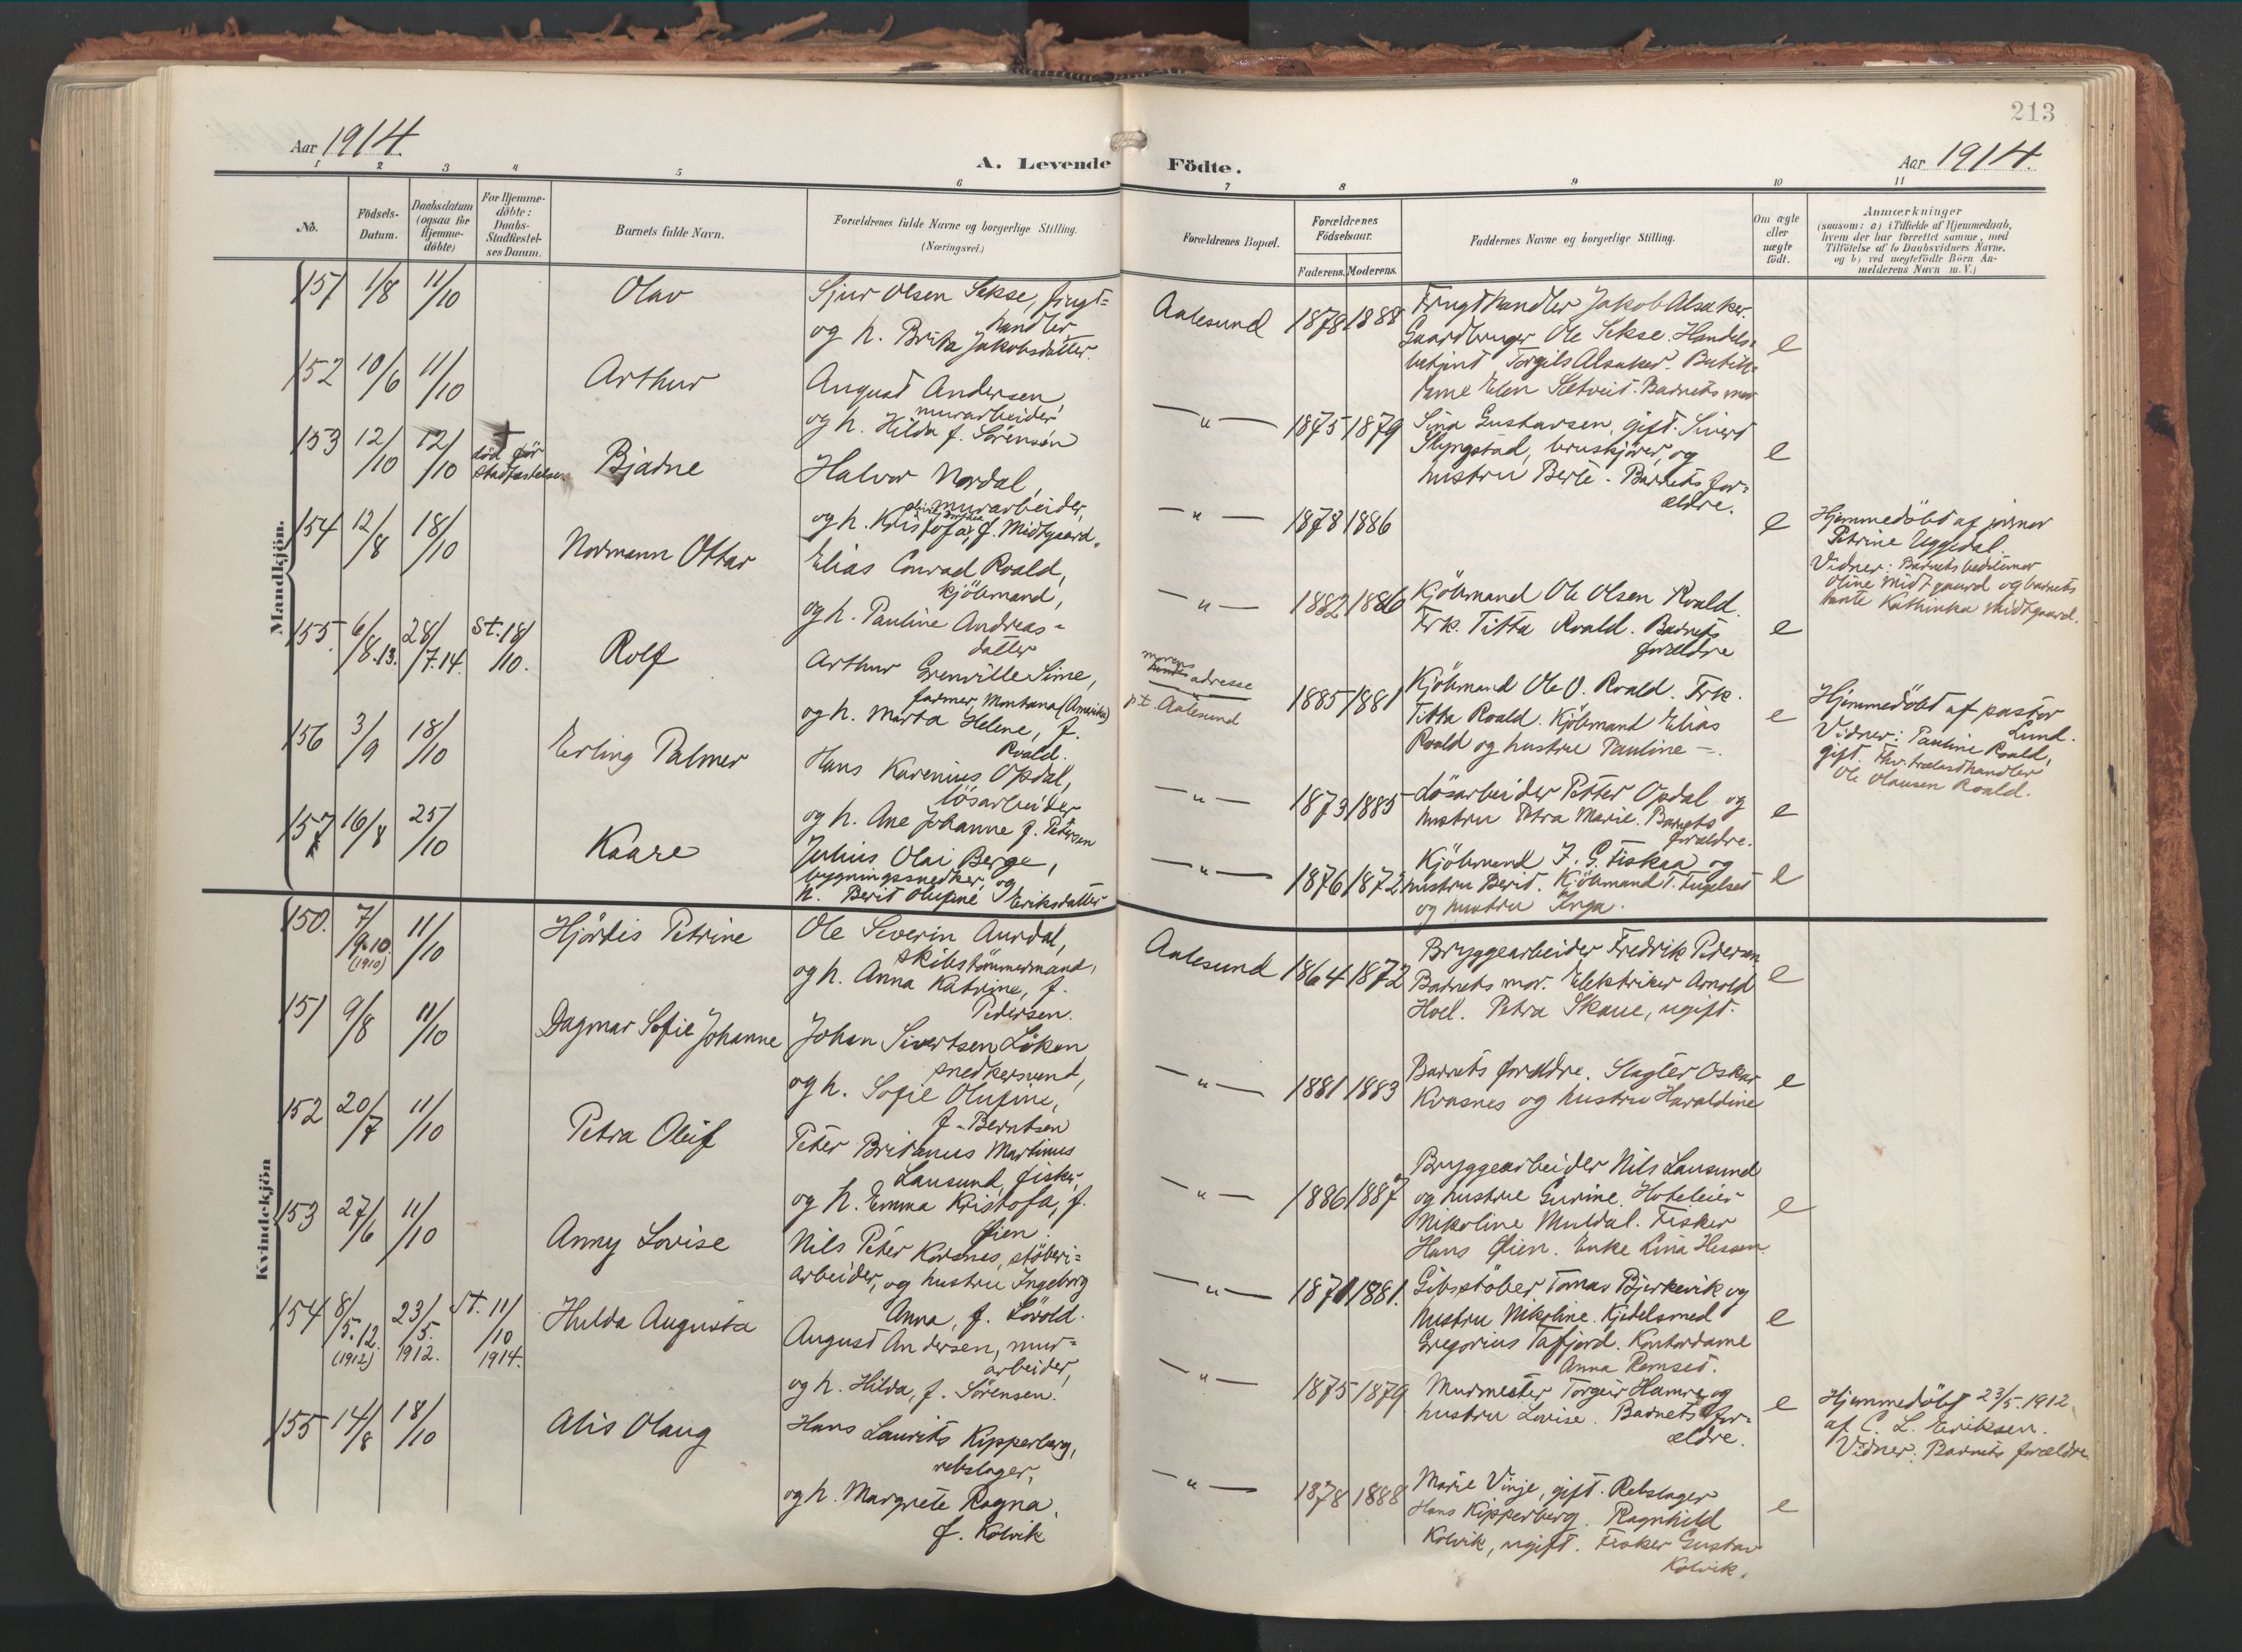 213
Aar 1914.
A. Levende Födte.
Aar 1914.
1 2 3 4 5 6 7 8 9 10 11
No.
Födsels-
Datum.
Daabsdatum
(ogsaa for
Hjemme-
döbte)
For Hjemme-
döbte:
Daabs-
Stadfæstel-
ses Datum.
Barnets fulde Navn.
Forældrenes fulde Navne og borgerlige Stilling.
(Næringsvei.)
Forældrenes Bopæl.
Forældrenes
Födselsaar.
Faderens. Moderens.
Faddernes Navne og borgerlige Stilling.
Om ægte
eller
uægte
födt.
Anmærkninger
(saasom: a) i Tilfælde af Hjemmedaab,
hvem der har forrettet samme, med
Tilföielse af to Daabsvidners Navne,
og b) ved uegtefödte Börn An-
melderens Navn m. V.)
Mandkjön.
151 1/8 11/10 Olav
Sjur Olsen Sekse, frugt=
handler
og h. Brita Jakobsdatter.
Aalesund 1878 1888
Frugthandler Jakob Alsaker.
Gaardbruger Ole Sekse. Handels=
betjent Torgils Alsaker. Butik=
dame Elen Sætveit. Barnets mor
e
152 10/6 11/10 Arthur
August Andersen,
murarbeider
og h. Hilda f. Sörensen
—"— 1875 1879
Sina Gustavsen, gift. Sivert
Slyngstad, bruskjörer, og
hustru Berte. Barnets for=
ældre.
e
153 12/10 12/10 †
död för
stadfæstelsen
Bjarne
Halvor Nordal,
murarbeider,
og h. Kristofa, f. Midtgaard.
—"— 1878 1886
e
Hjemmedöbt af jormor
Petrine Uggedal.
Vidner: Barnets bedstemor
Oline Midtgaard og barnets
tante Kathinka Midtgaard.
154 12/8 18/10 Normann Ottar
Elias Conrad Roald,
kjöbmand,
og h. Pauline Andreas=
datter
—"— 1882 1886
Kjöbmand Ole Olsen Roald.
Frk. Titta Roald. Barnets
forældre
e
155. 6/8.13. 28/7.14. St. 18/10. Rolf
Arthur Grenville Sime,
farmer, Montana (Amerika)
og h. Marta Helene, f.
Roald.
morens
adresse
p.t. Aalesund
1885 1881
Kjöbmand Ole O. Roald. Frk.
Titta Roald. Kjöbmand Elias
Roald og hustru Pauline —.
e
Hjemmedöbt af pastor
Lund.
Vidner: Pauline Roald,
gift. Fhv. trælasthandler
Ole Olausen Roald.
156 3/9 18/10 Erling Palmer
Hans Karenius Opdal,
lösarbeider
og h. Ane Johanne f. Petersen
—"— 1873 1885
Lösarbeider Petter Opdal og
hustru Petra Marie. Barnets
forældre.
e
157 16/8 25/10 Kaare
Julius Olai Berge,
bygningssnedker, og
h. Berit Olufine Eriksdatter
—"— 1876 1872
Kjöbmand J. G. Fiskaa og
hustru Berit. Kjöbmand T. Fugelset
og hustru Inga.
e
Kvindekjön
150. 7/9.10 (1910) 11/10 Hjördis Petrine
Ole Severin Aurdal,
skibstömmermand,
og h. Anna Katrine, f.
Pedersen.
Aalesund 1864 1872
Bryggearbeider Fredrik Pedersen
Barnets mor. Elektriker Arnold
Hoel. Petra Skaue, ugift.
e
151 9/8 11/10 Dagmar Sofie Johanne
Johan Sivertsen Löken
snedkersvend,
og h. Sofie Olufine,
f. Berntsen
—"— 1881 1883
Barnets forældre. Slagter Oskar
Kvasnes og hustru Haraldine
e
152 20/7 11/10 Petra Oleif
Peter Britanus Martinus
Lausund, fisker,
og h. Emma Kristofa, f.
Öien.
—"— 1886 1887
Bryggearbeider Nils Lausund
og hustru Gurine. Hoteleier
Nikoline Muldal. Fisker
Hans Öien. Enke Lina Hessen.
e
153 27/6 11/10 Anny Lovise
Nils Peter Korsnes, stöberi=
arbeider, og hustru Ingeborg
Anna, f. Lövold.
—"— 1871 1881.
Gibsstöber Tomas Bjerkevik og
hustru Nikoline. Kjedelsmed
Gregorius Tafjord. Kontordame
Anna Remset.
e
154 8/5.12. (1912) 23/5. 1912. St. 11/10 1914. Hulda Augusta
August Andersen, mur=
arbeider,
og h. Hilda, f. Sörensen.
—"— 1875 1879
Murmester Torgeir Hamre og
hustru Lovise. Barnets for=
ældre.
e
Hjemmedöbt 23/5.1912
af C. L. Eriksen.
Vidner: Barnets forældre
155 14/8 18/10 Alis Olaug
Hans Laurits Kipperberg,
rebslager,
og h. Margrete Ragna,
f. Kolvik
—"— 1878 1888
Marie Vinje, gift. Rebslager
Hans Kipperberg. Ragnhild
Kolvik, ugift. Fisker Gustav
Kolvik.
e